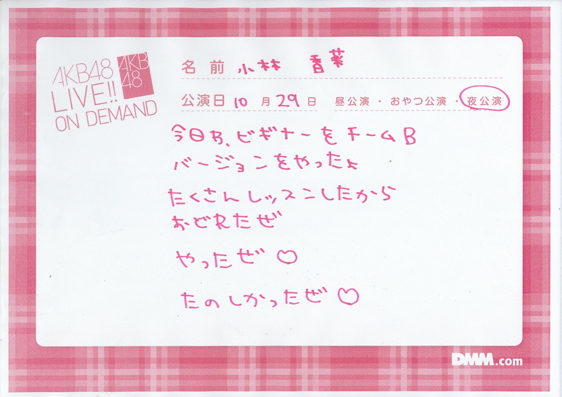 AKB48
LIVE!!
ON DEMAND
AKB
48
名前 小林 香菜
公演日 10月29日 昼公演・おやつ公演・夜公演
今日は、ビギナーをチームB
バージョンをやったよ
たくさんレッスンしたから
おどれたぜ
やったぜ♡
たのしかったぜ♡
DMM.com